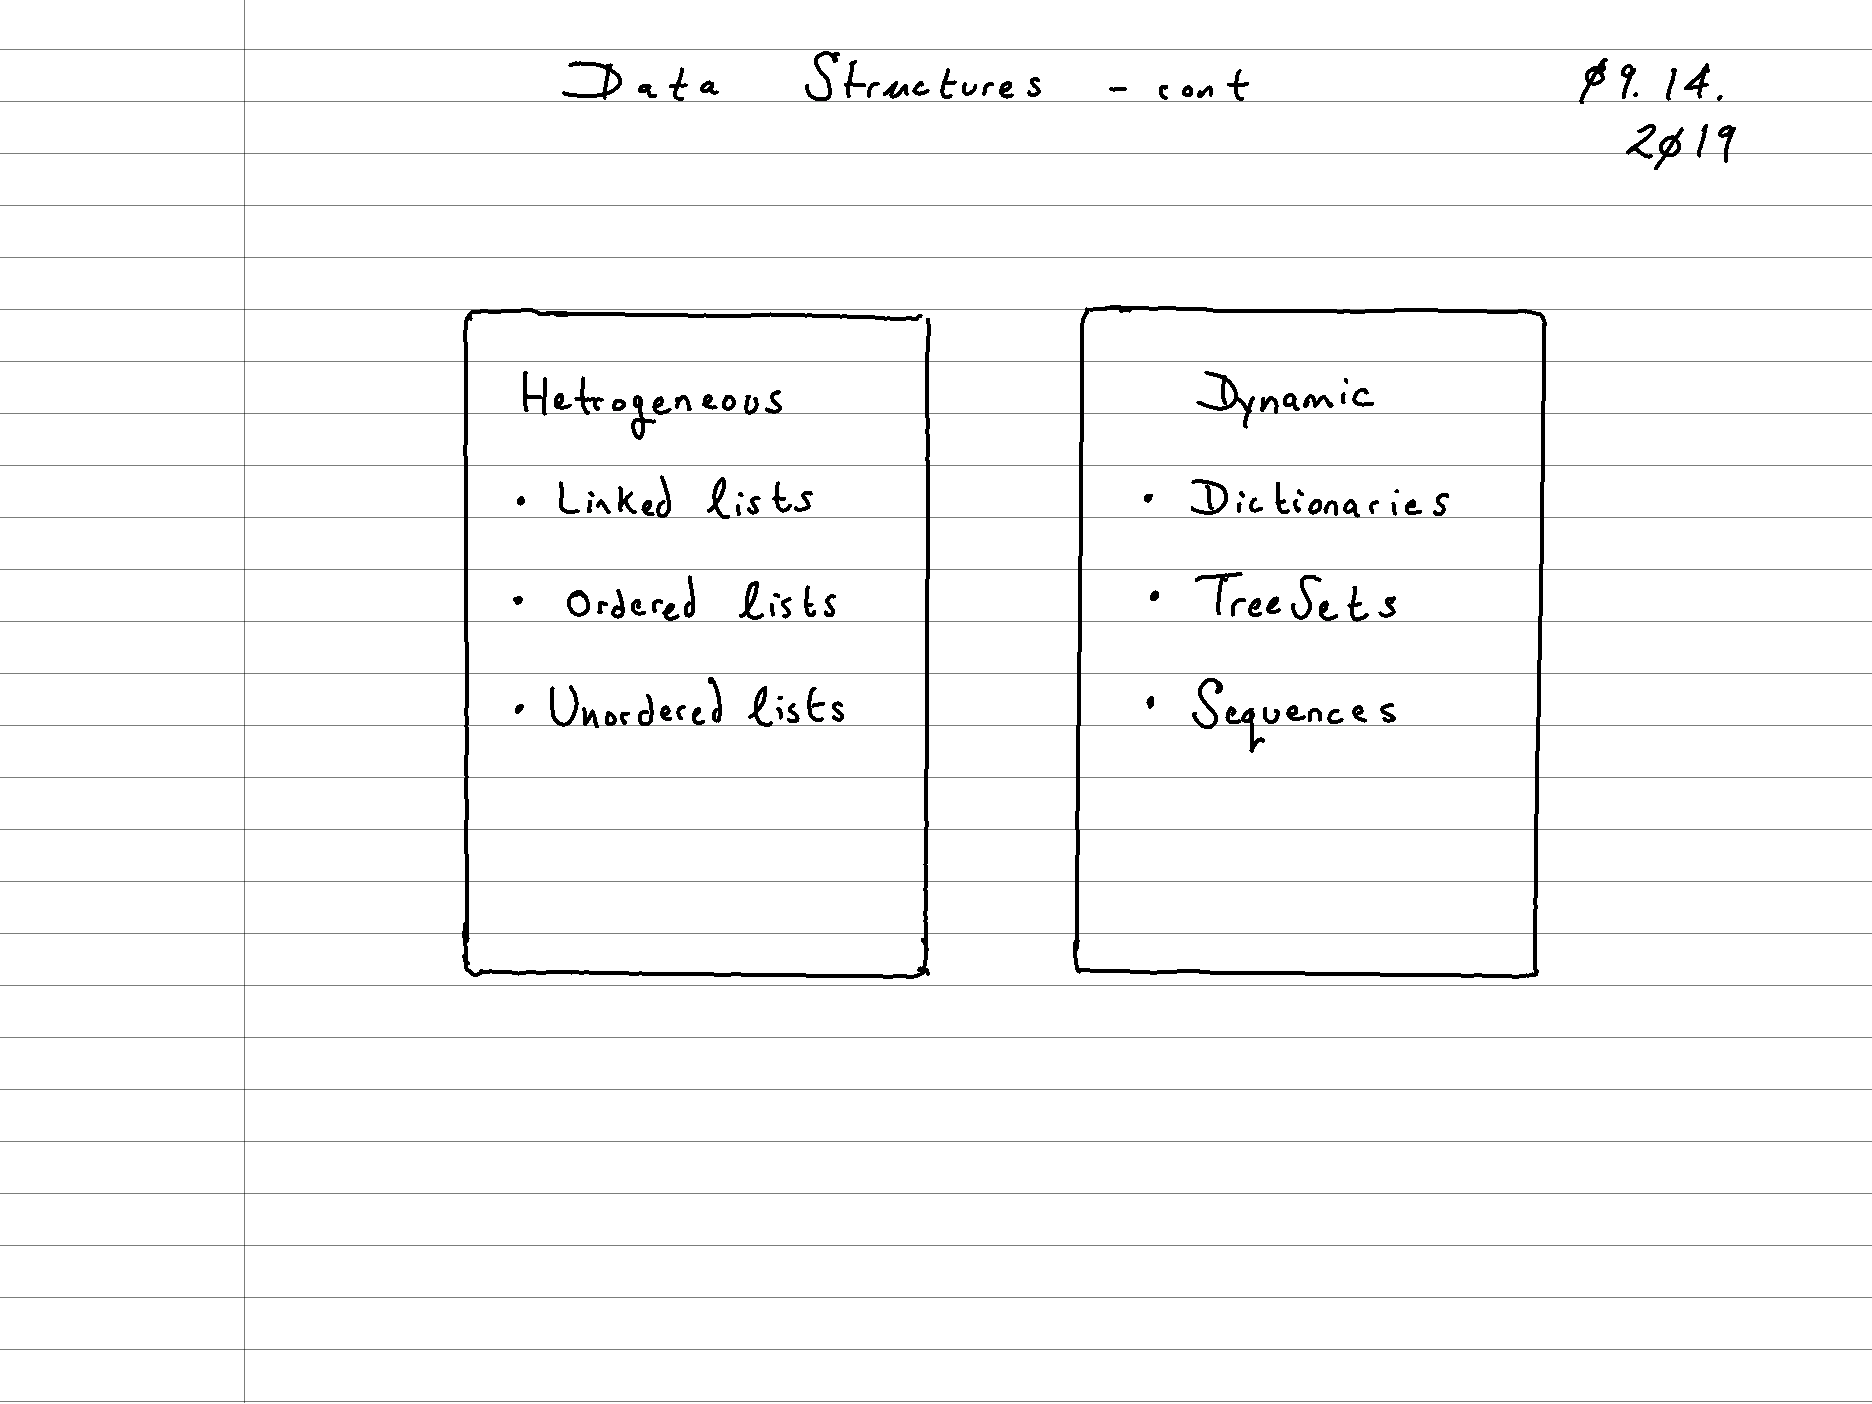 Data Structures - cont
Ø9.14.
2Ø19
Hetrogeneous
• Linked lists
• Ordered lists
• Unordered lists
Dynamic
• Dictionaries
• TreeSets
• Sequences